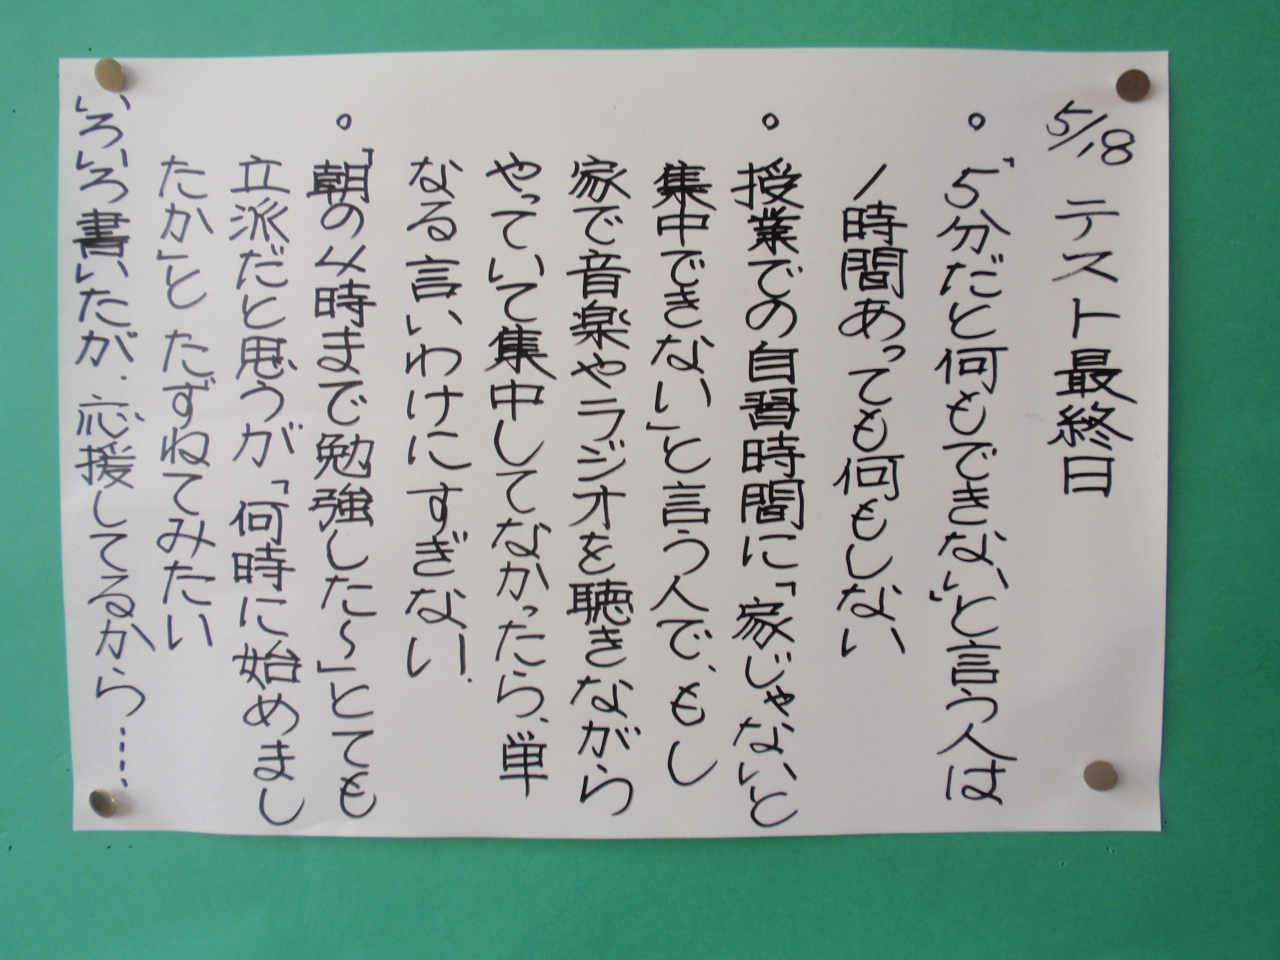 5/18 テスト最終日
。「5分だと何もできない」と言う人は
1時間あっても何もしない
。授業での自習時間に「家じゃないと
集中できない」と言う人で、もし
家で音楽やラジオを聴きながら
やっていて集中してなかったら、単
なる言いわけにすぎない.
。「朝の4時まで勉強した〜」とても
立派だと思うが「何時に始めまし
たか」と たずねてみたい
いろいろ書いたが.応援してるから……